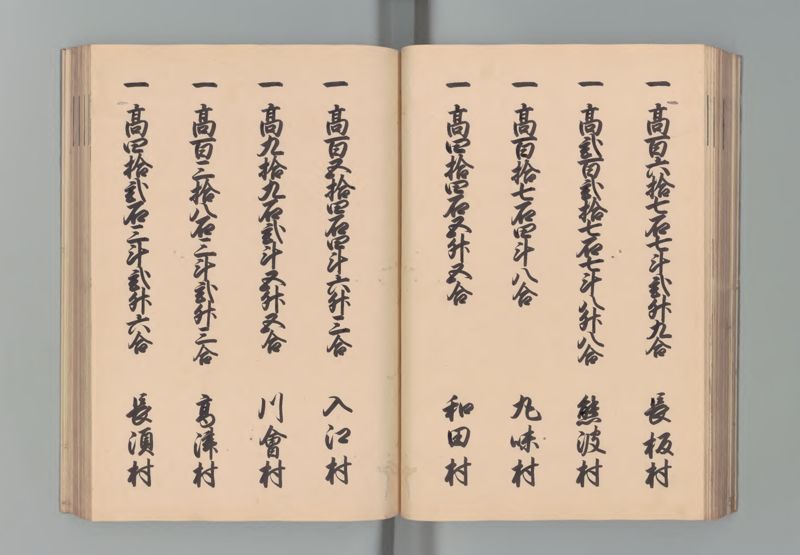 一 高百六拾七石七斗弐升九合 長板村
一 高弐百弐拾七石七斗八升八合 熊波村
一 高百拾七石四斗八合 丸味村
一 高四拾四石五升五合 和田村
一 高百五拾四石四斗六升三合 入江村
一 高九拾九石弐斗五升五合 川會村
一 高百三拾八石三斗弐升三合 高津村
一 高四拾弐石三斗弐升六合 長須村